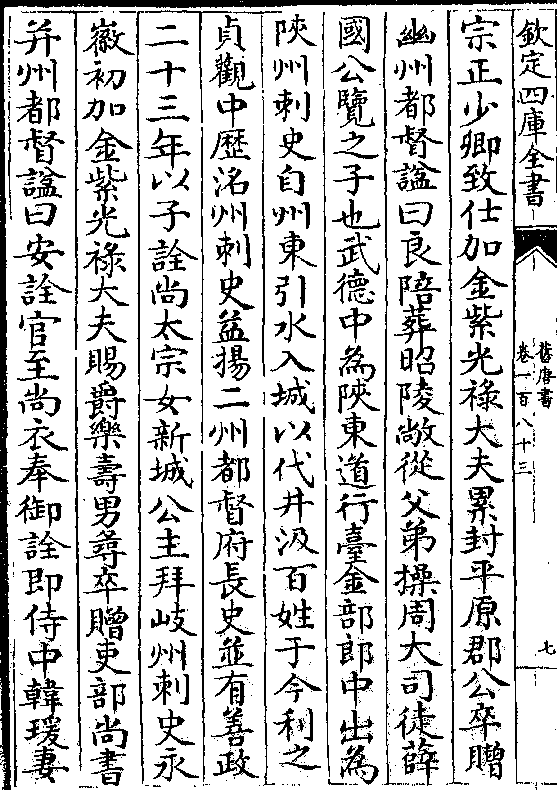 欽定四庫全書
舊唐書
卷一百八十三
七
宗正少卿致仕加金紫光祿大夫累封平原郡公卒贈
幽州都督諡曰良陪葬昭陵敞從父弟操周大司徒薛
國公覽之子也武德中為陝東道行臺金部郎中出為
陝州刺史自州東引水入城以代井汲百姓于今利之
貞觀中歷洺州刺史益揚二州都督府長史並有善政
二十三年以子詮尚太宗女新城公主拜岐州刺史永
徽初加金紫光祿大夫賜爵樂壽男尋卒贈吏部尚書
并州都督諡曰安詮官至尚衣奉御詮即侍中韓瑗妻